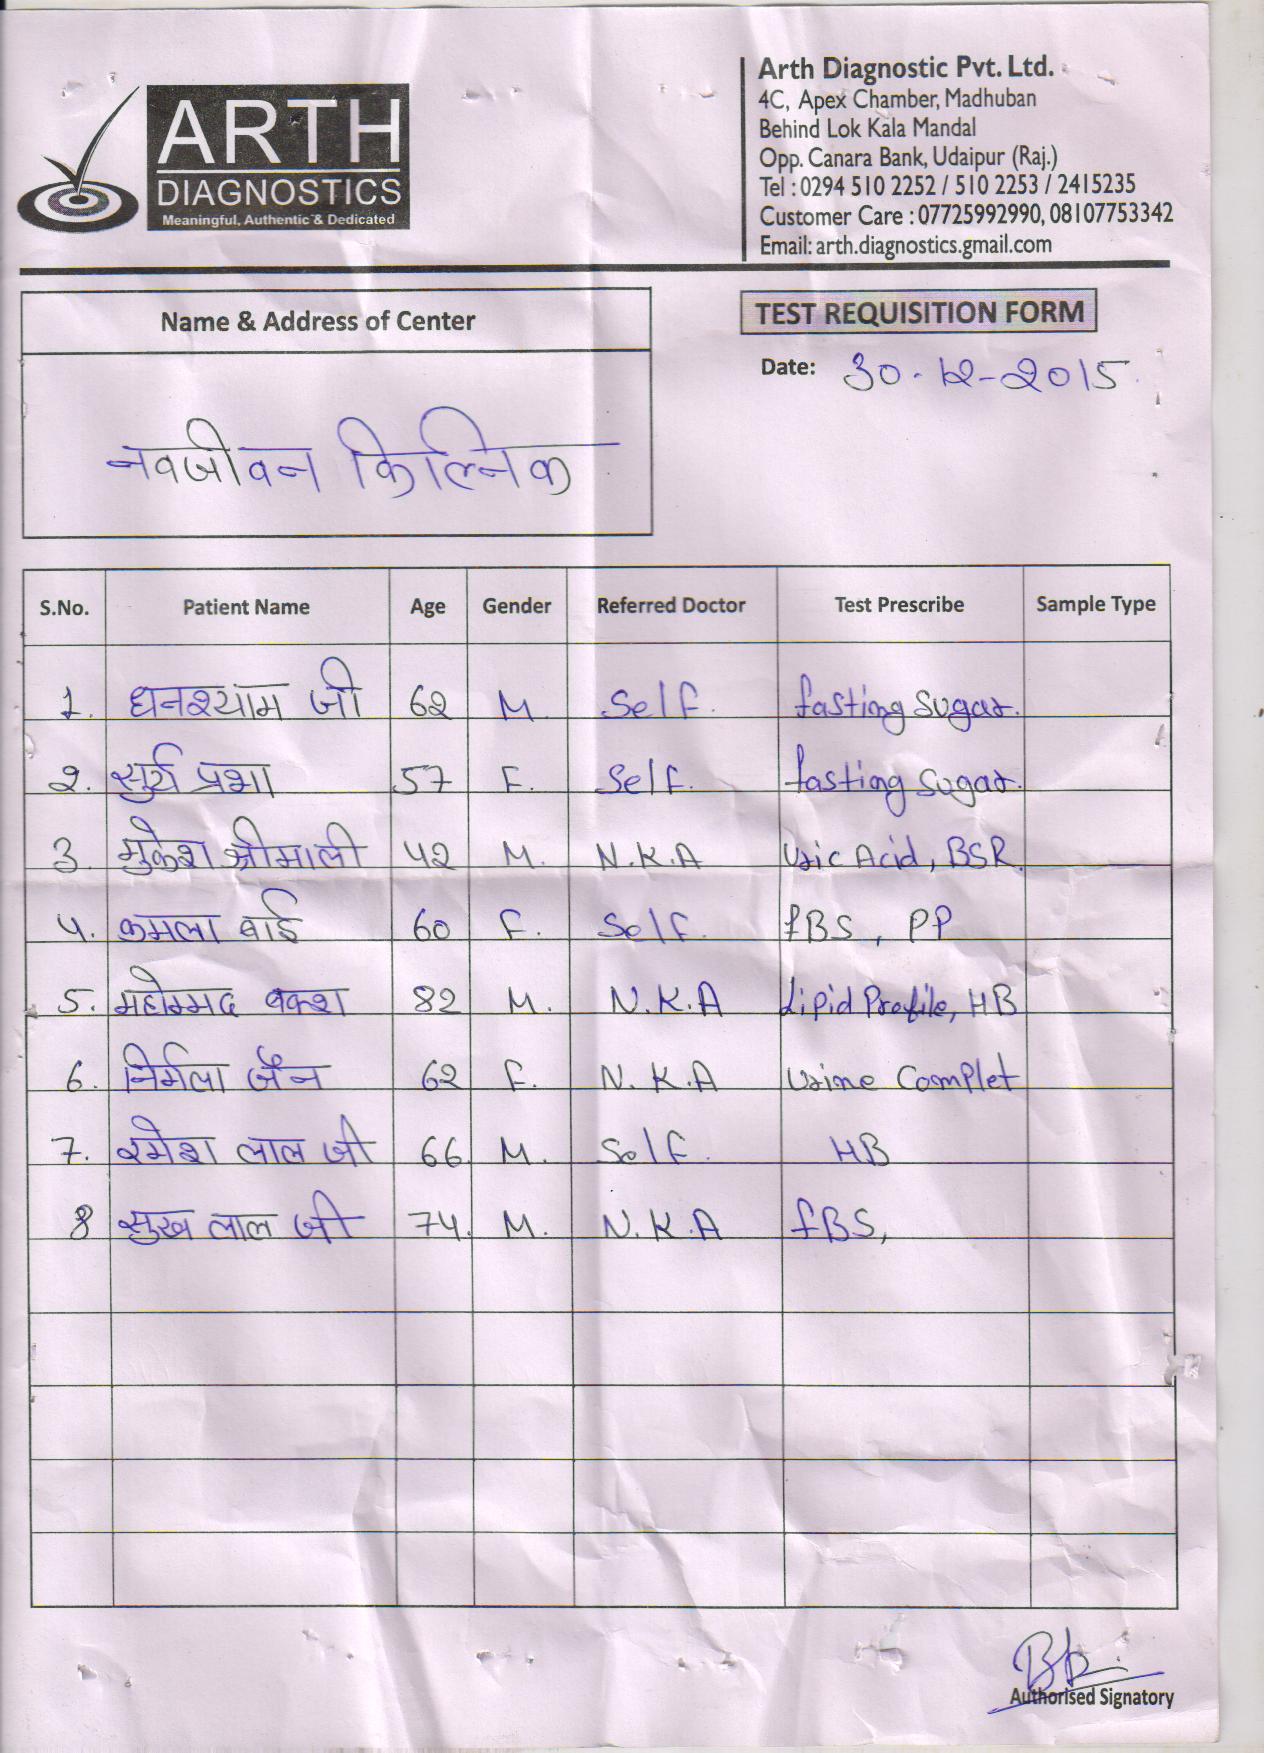 ARTH
DIAGNOSTICS
Meaningful, Authentic & Dedicated
Arth Diagnostic Pvt. Ltd.
4C, Apex Chamber, Madhuban
Behind Lok Kala Mandal
Opp. Canara Bank, Udaipur (Raj.)
Tel : 0294 510 2252 / 510 2253 / 2415235
Customer Care : 07725992990, 08107753342
Email: arth.diagnostics.gmail.com
Name & Address of Center
नवजीवन किल्निक
TEST REQUISITION FORM
Date: 30-12-2015
S.No. Patient Name Age Gender Referred Doctor Test Prescribe Sample Type
1. घनश्याम जी 62 M. Self. fasting Sugar.
2. सुर्य प्रभा 57 F. Self. fasting Sugar.
3. मुकेश श्रीमाली 42 M. N.K.A Uric Acid, BSR.
4. कमला बाई 60 F. Self. fBS, PP
5. महोम्मद बक्श 82 M. N.K.A Lipid Profile, HB
6. निर्मला जैन 62 F. N.K.A Urine Complet
7. रमेश लाल जी 66 M. Self. HB
8 सुख लाल जी 74. M. N.K.A fBS,
Authorised Signatory